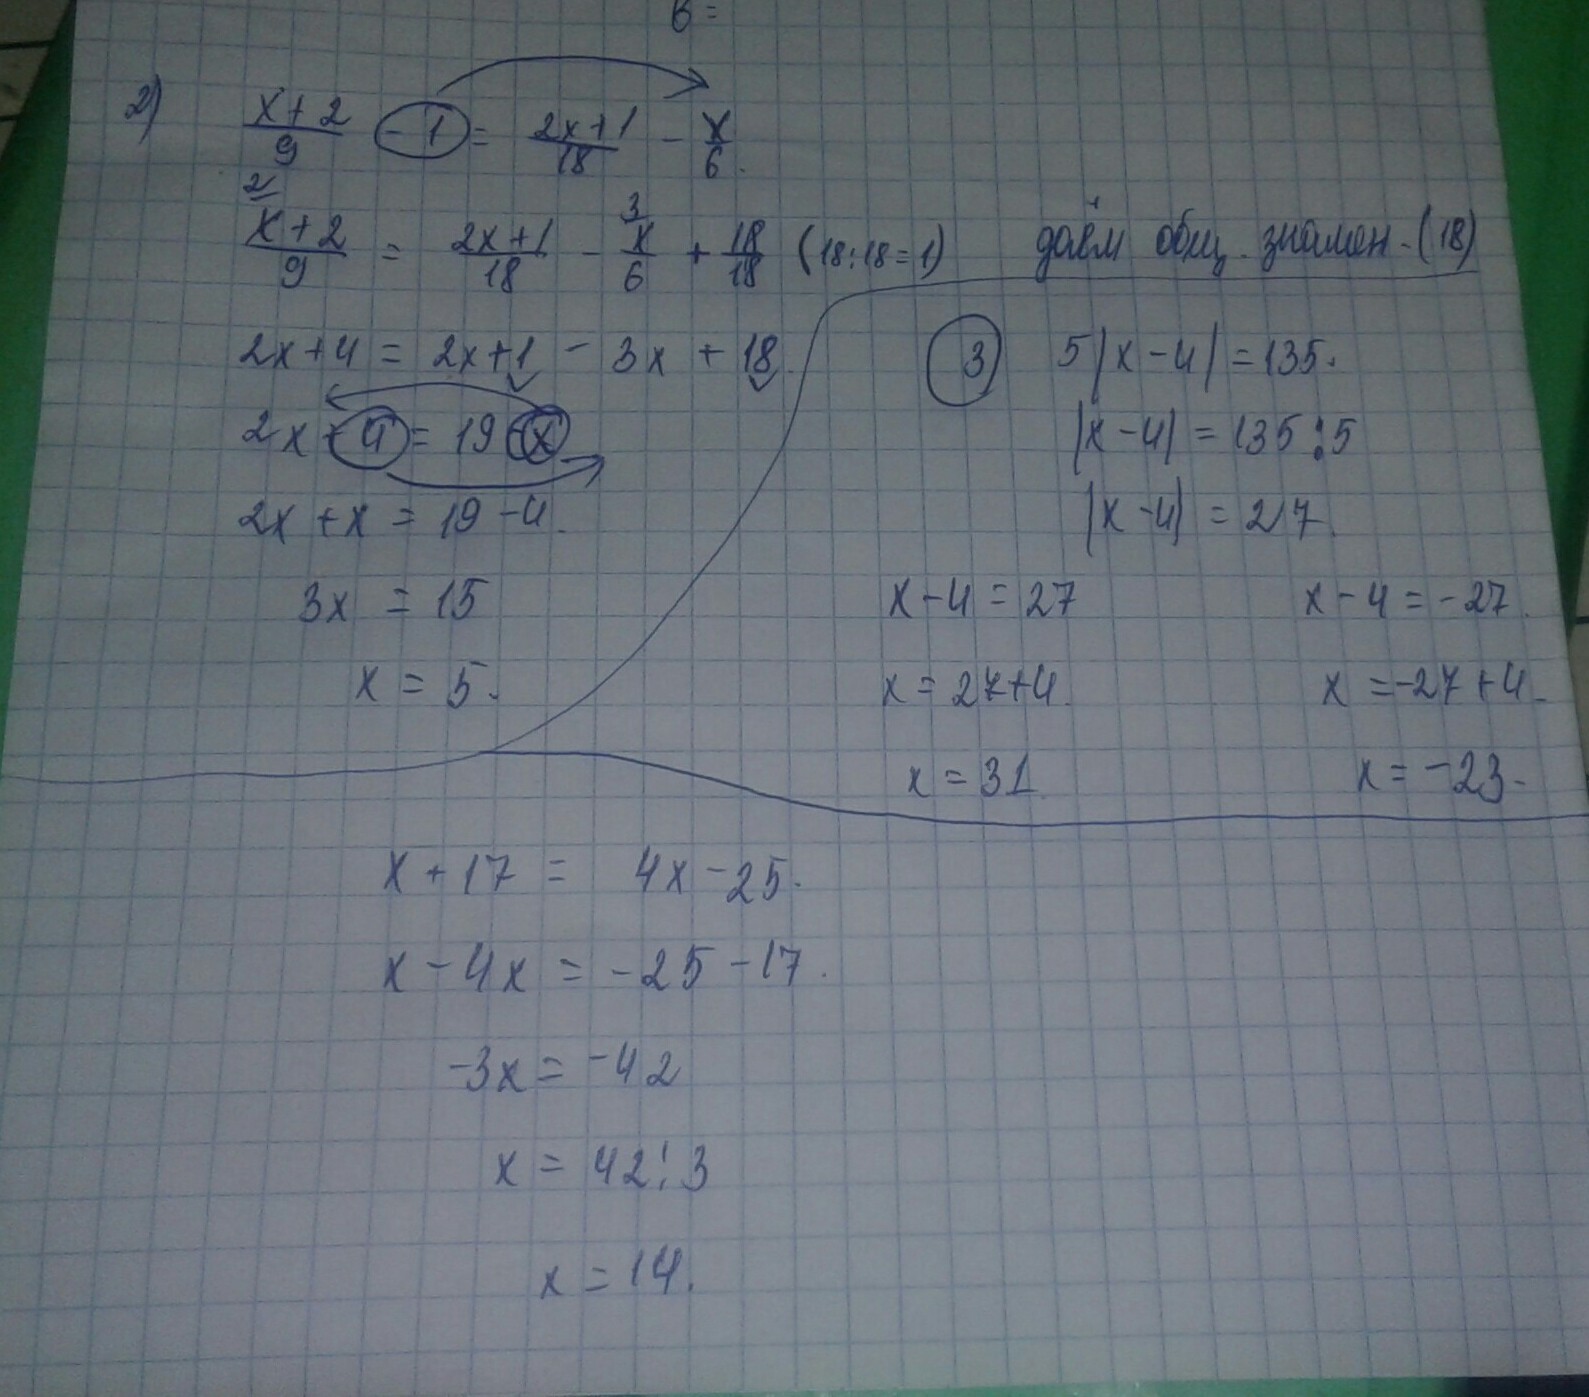 в =
2) (x+2)/9 - 1 = (2x+1)/18 - x/6.
2
(x+2)/9 = (2x+1)/18 - 3 x/6 + 18/18 (18:18=1) даём общ. знамен. (18)
2x+4 = 2x+1 - 3x + 18
2x+4 = 19-x
2x+x = 19-4.
3x = 15
x = 5.
3 5|x-4|=135.
|x-4| = 135:5
|x-4| = 27.
x-4=27 x-4=-27.
x=27+4. x=-27+4.
x=31 x=-23.
x+17 = 4x-25.
x-4x = -25-17.
-3x = -42
x = 42:3
x = 14.